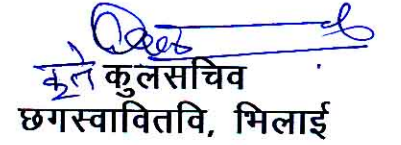 कृते कुलसचिव
छगस्वावितवि, भिलाई